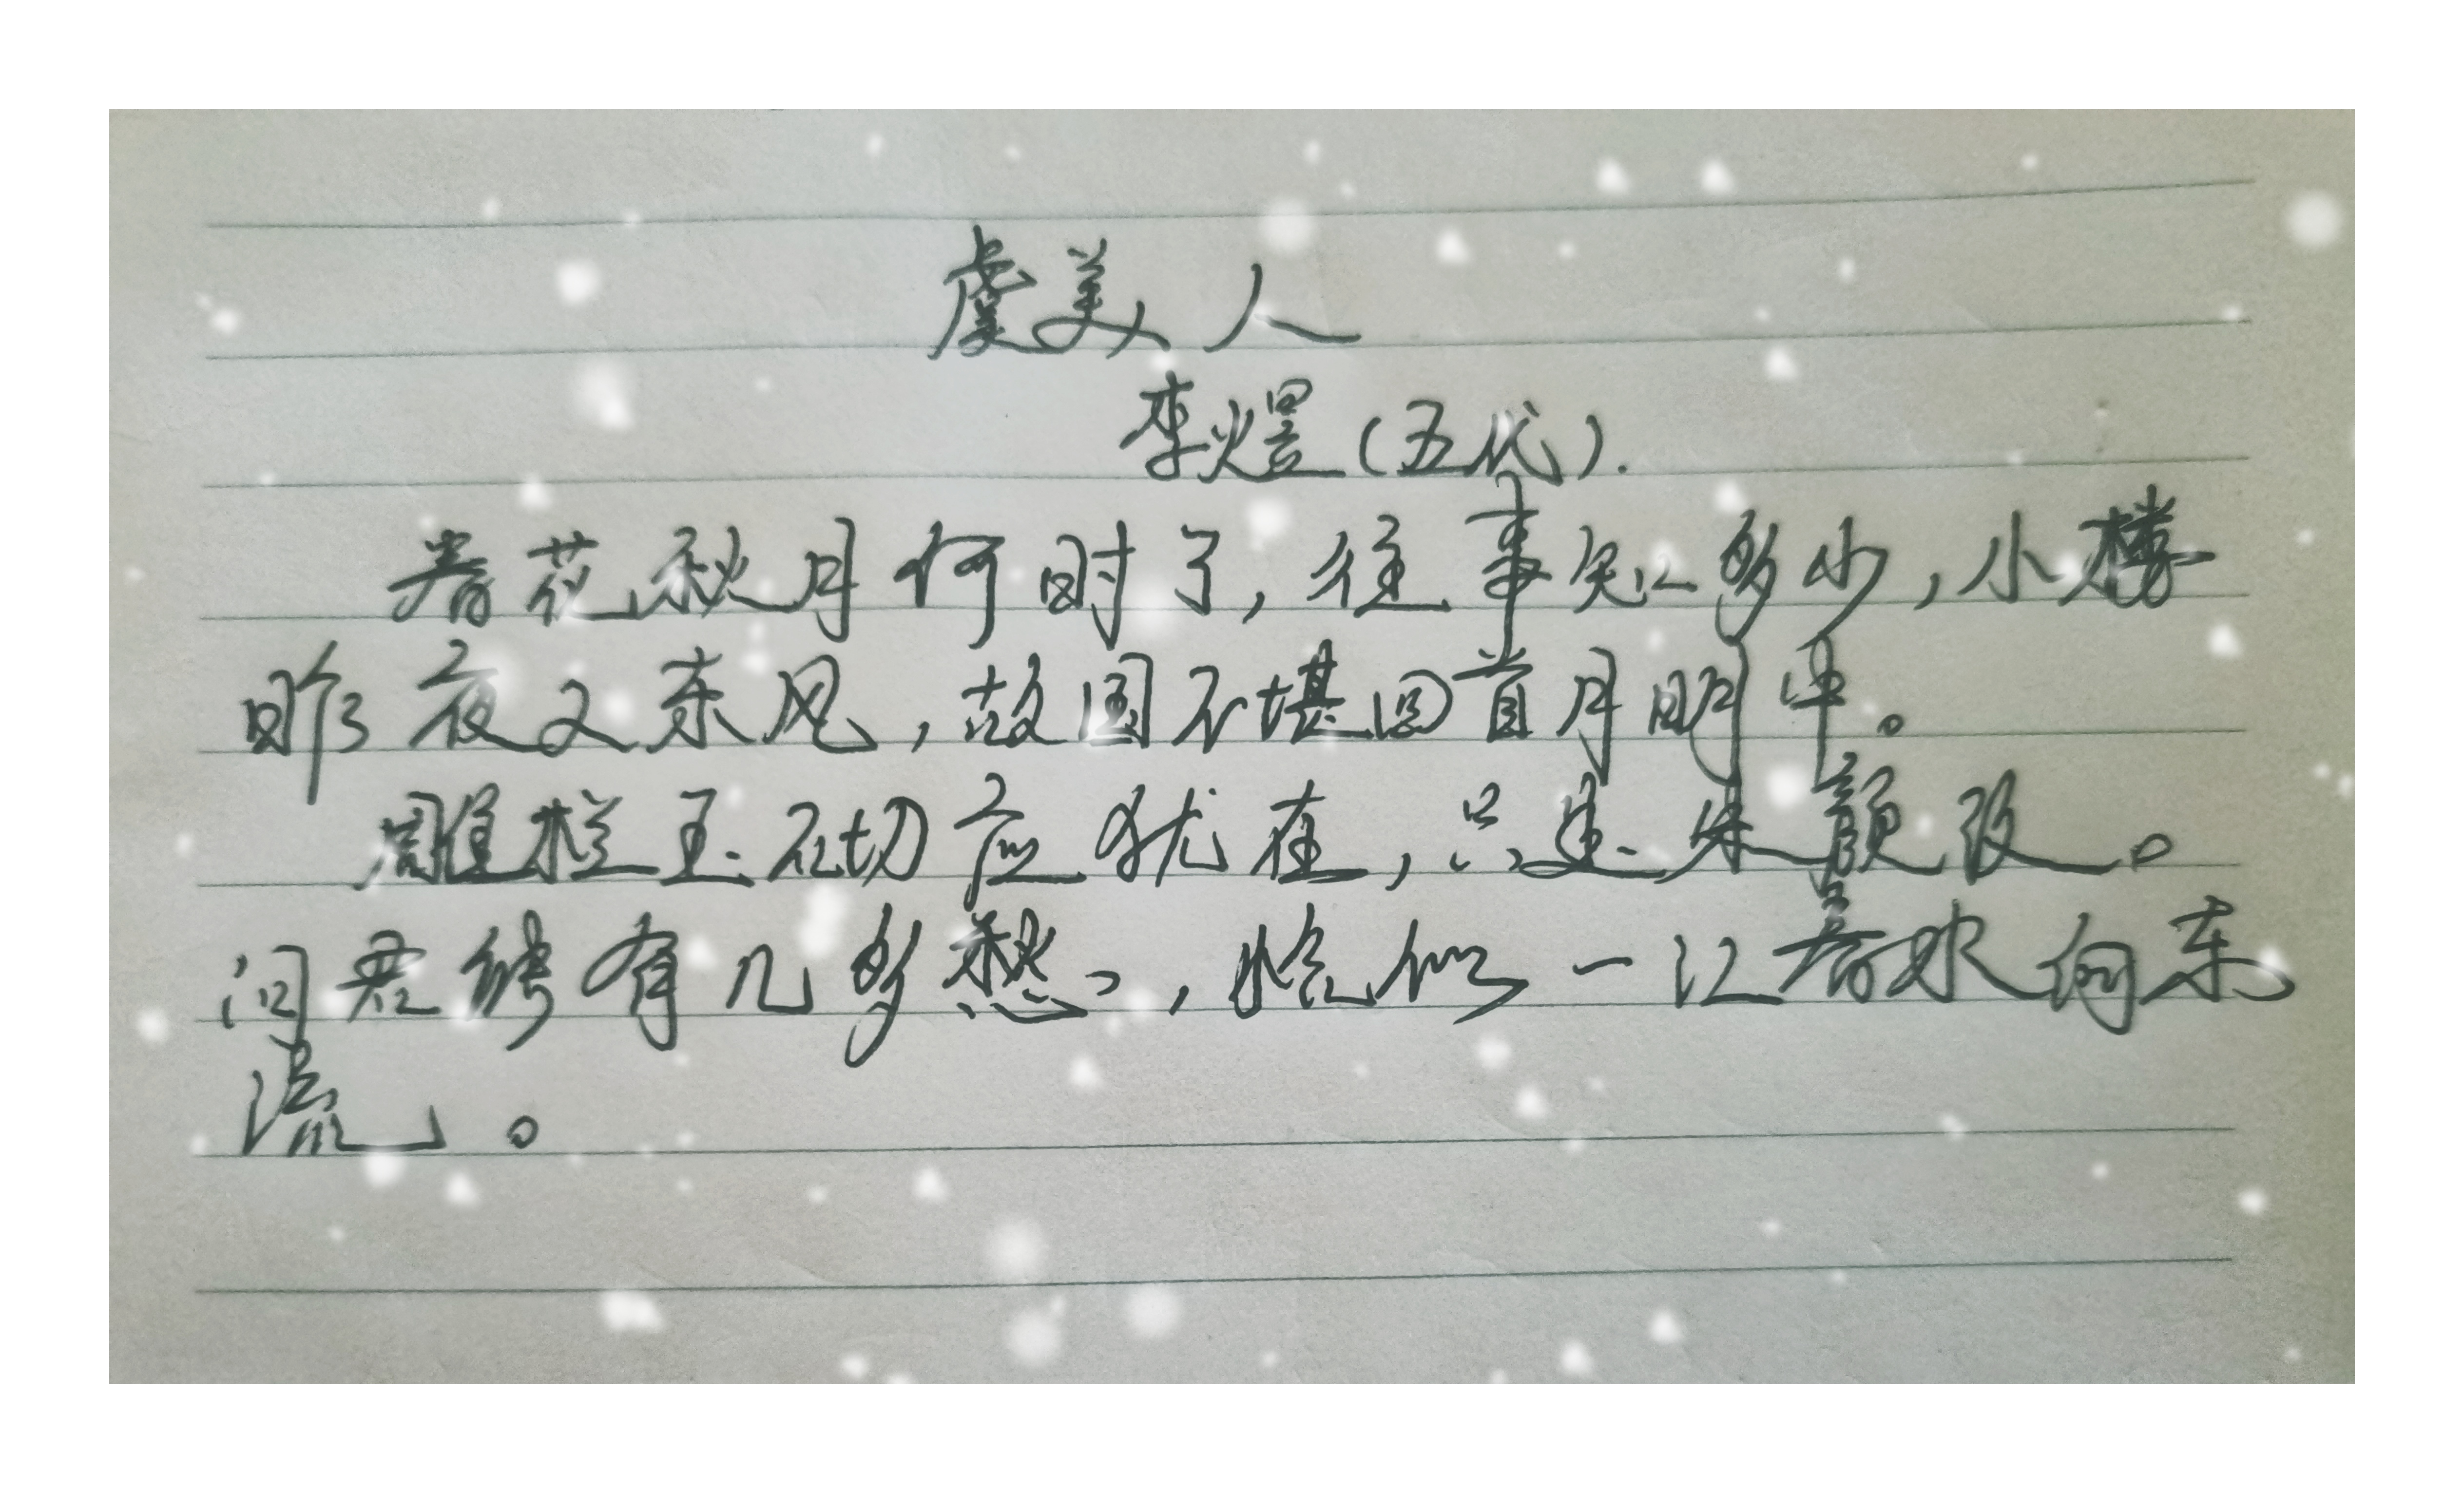 虞美人
李煜(五代).
春花秋月何时了,往事知多少,小楼
昨夜又东风,故国不堪回首月明中。
雕栏玉砌应犹在,只是朱颜改。
问君能有几多愁,恰似一江春水向东
流。